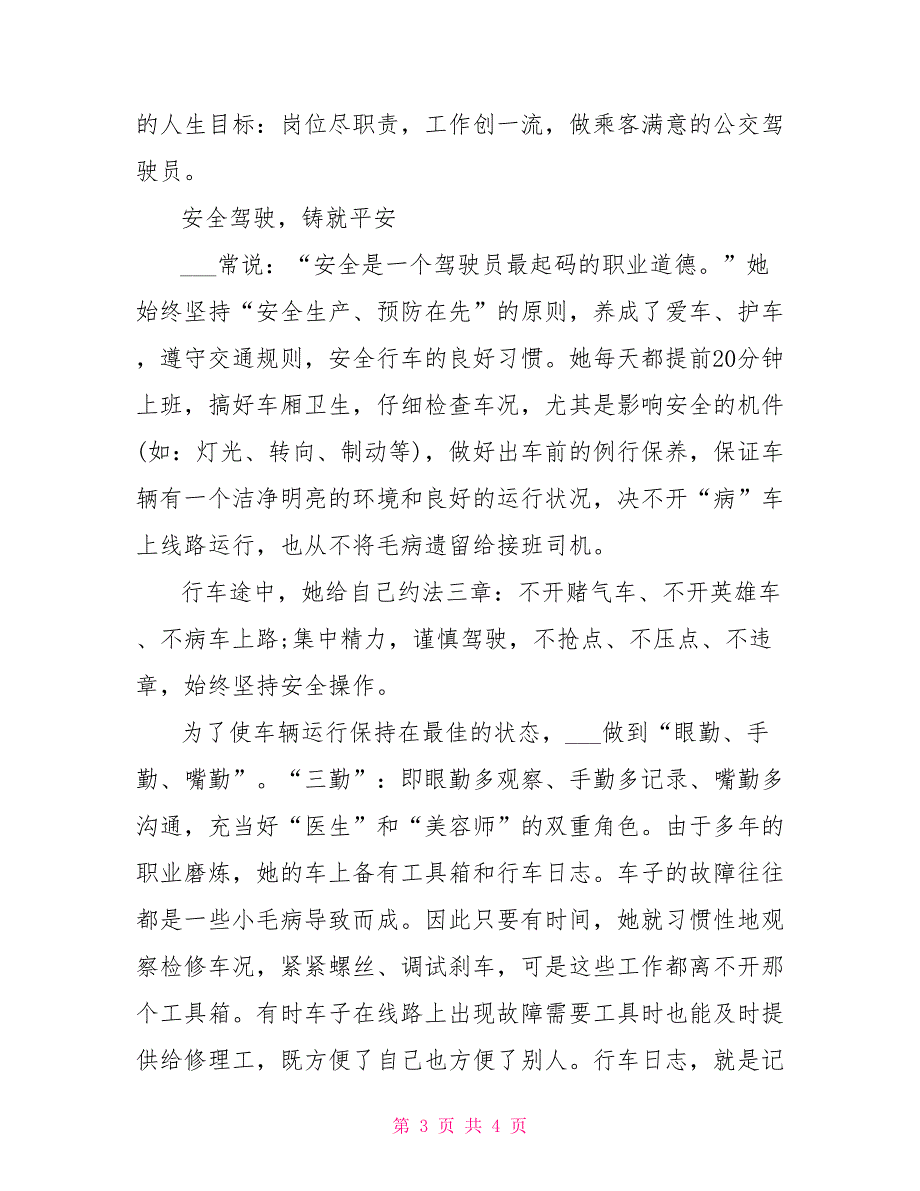 的人生目标：岗位尽职责，工作创一流，做乘客满意的公交驾
驶员。
安全驾驶，铸就平安
___常说：“安全是一个驾驶员最起码的职业道德。”她
始终坚持“安全生产、预防在先”的原则，养成了爱车、护车
，遵守交通规则，安全行车的良好习惯。她每天都提前20分钟
上班，搞好车厢卫生，仔细检查车况，尤其是影响安全的机件
(如：灯光、转向、制动等)，做好出车前的例行保养，保证车
辆有一个洁净明亮的环境和良好的运行状况，决不开“病”车
上线路运行，也从不将毛病遗留给接班司机。
行车途中，她给自己约法三章：不开赌气车、不开英雄车
、不病车上路;集中精力，谨慎驾驶，不抢点、不压点、不违
章，始终坚持安全操作。
为了使车辆运行保持在最佳的状态，___做到“眼勤、手
勤、嘴勤”。“三勤”：即眼勤多观察、手勤多记录、嘴勤多
沟通，充当好“医生”和“美容师”的双重角色。由于多年的
职业磨炼，她的车上备有工具箱和行车日志。车子的故障往往
都是一些小毛病导致而成。因此只要有时间，她就习惯性地观
察检修车况，紧紧螺丝、调试刹车，可是这些工作都离不开那
个工具箱。有时车子在线路上出现故障需要工具时也能及时提
供给修理工，既方便了自己也方便了别人。行车日志，就是记
第 3 页 共 4 页